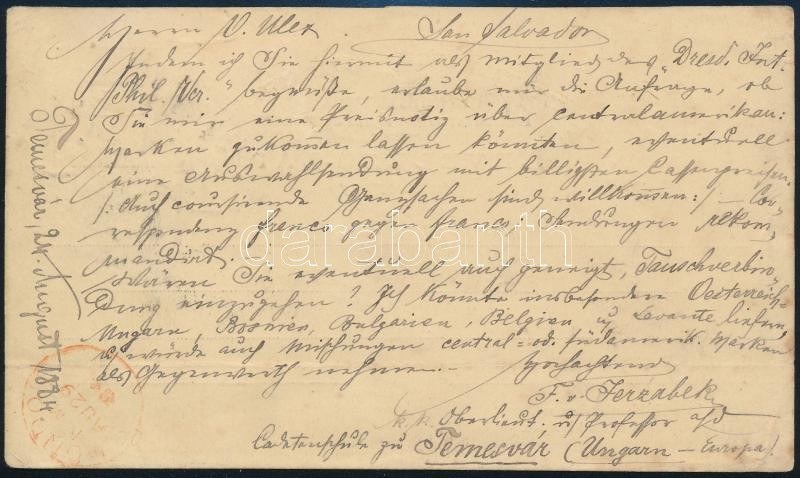 Herrn V. Ulex San Salvador
Indem ich Sie hiermit als Mitglied des "Dresd. Int.
Phil. Ver." begrüße, erlaube mir die Anfrage, ob
Sie mir eine Preisnotiz über centralamerikan:
Marken zukommen lassen könnten, eventuell
eine Auswahlsendung mit billigsten Cassenpreisen.
/: Auch coursirende Ganzsachen sind willkommen :/ – Cor-
respondenz franco gegen franco; Sendungen rekom-
mandirt.
Wären Sie eventuell auch geneigt, Tauschverbin-
dung einzugehen? Ich könnte insbesondere Oesterreich-
Ungarn, Bosnien, Bulgarien, Belgien u. Levante liefern,
u. würde auch Mischungen central- od. südamerik. Marken
als Gegenwerth nehmen. –
Hochachtend
F. v. Jerzabek
k. k. Oberlieut. u. Professor a/d
Cadetenschule zu Temesvár (Ungarn – Europa).
Temesvár, 24 August 1884.
darabanth